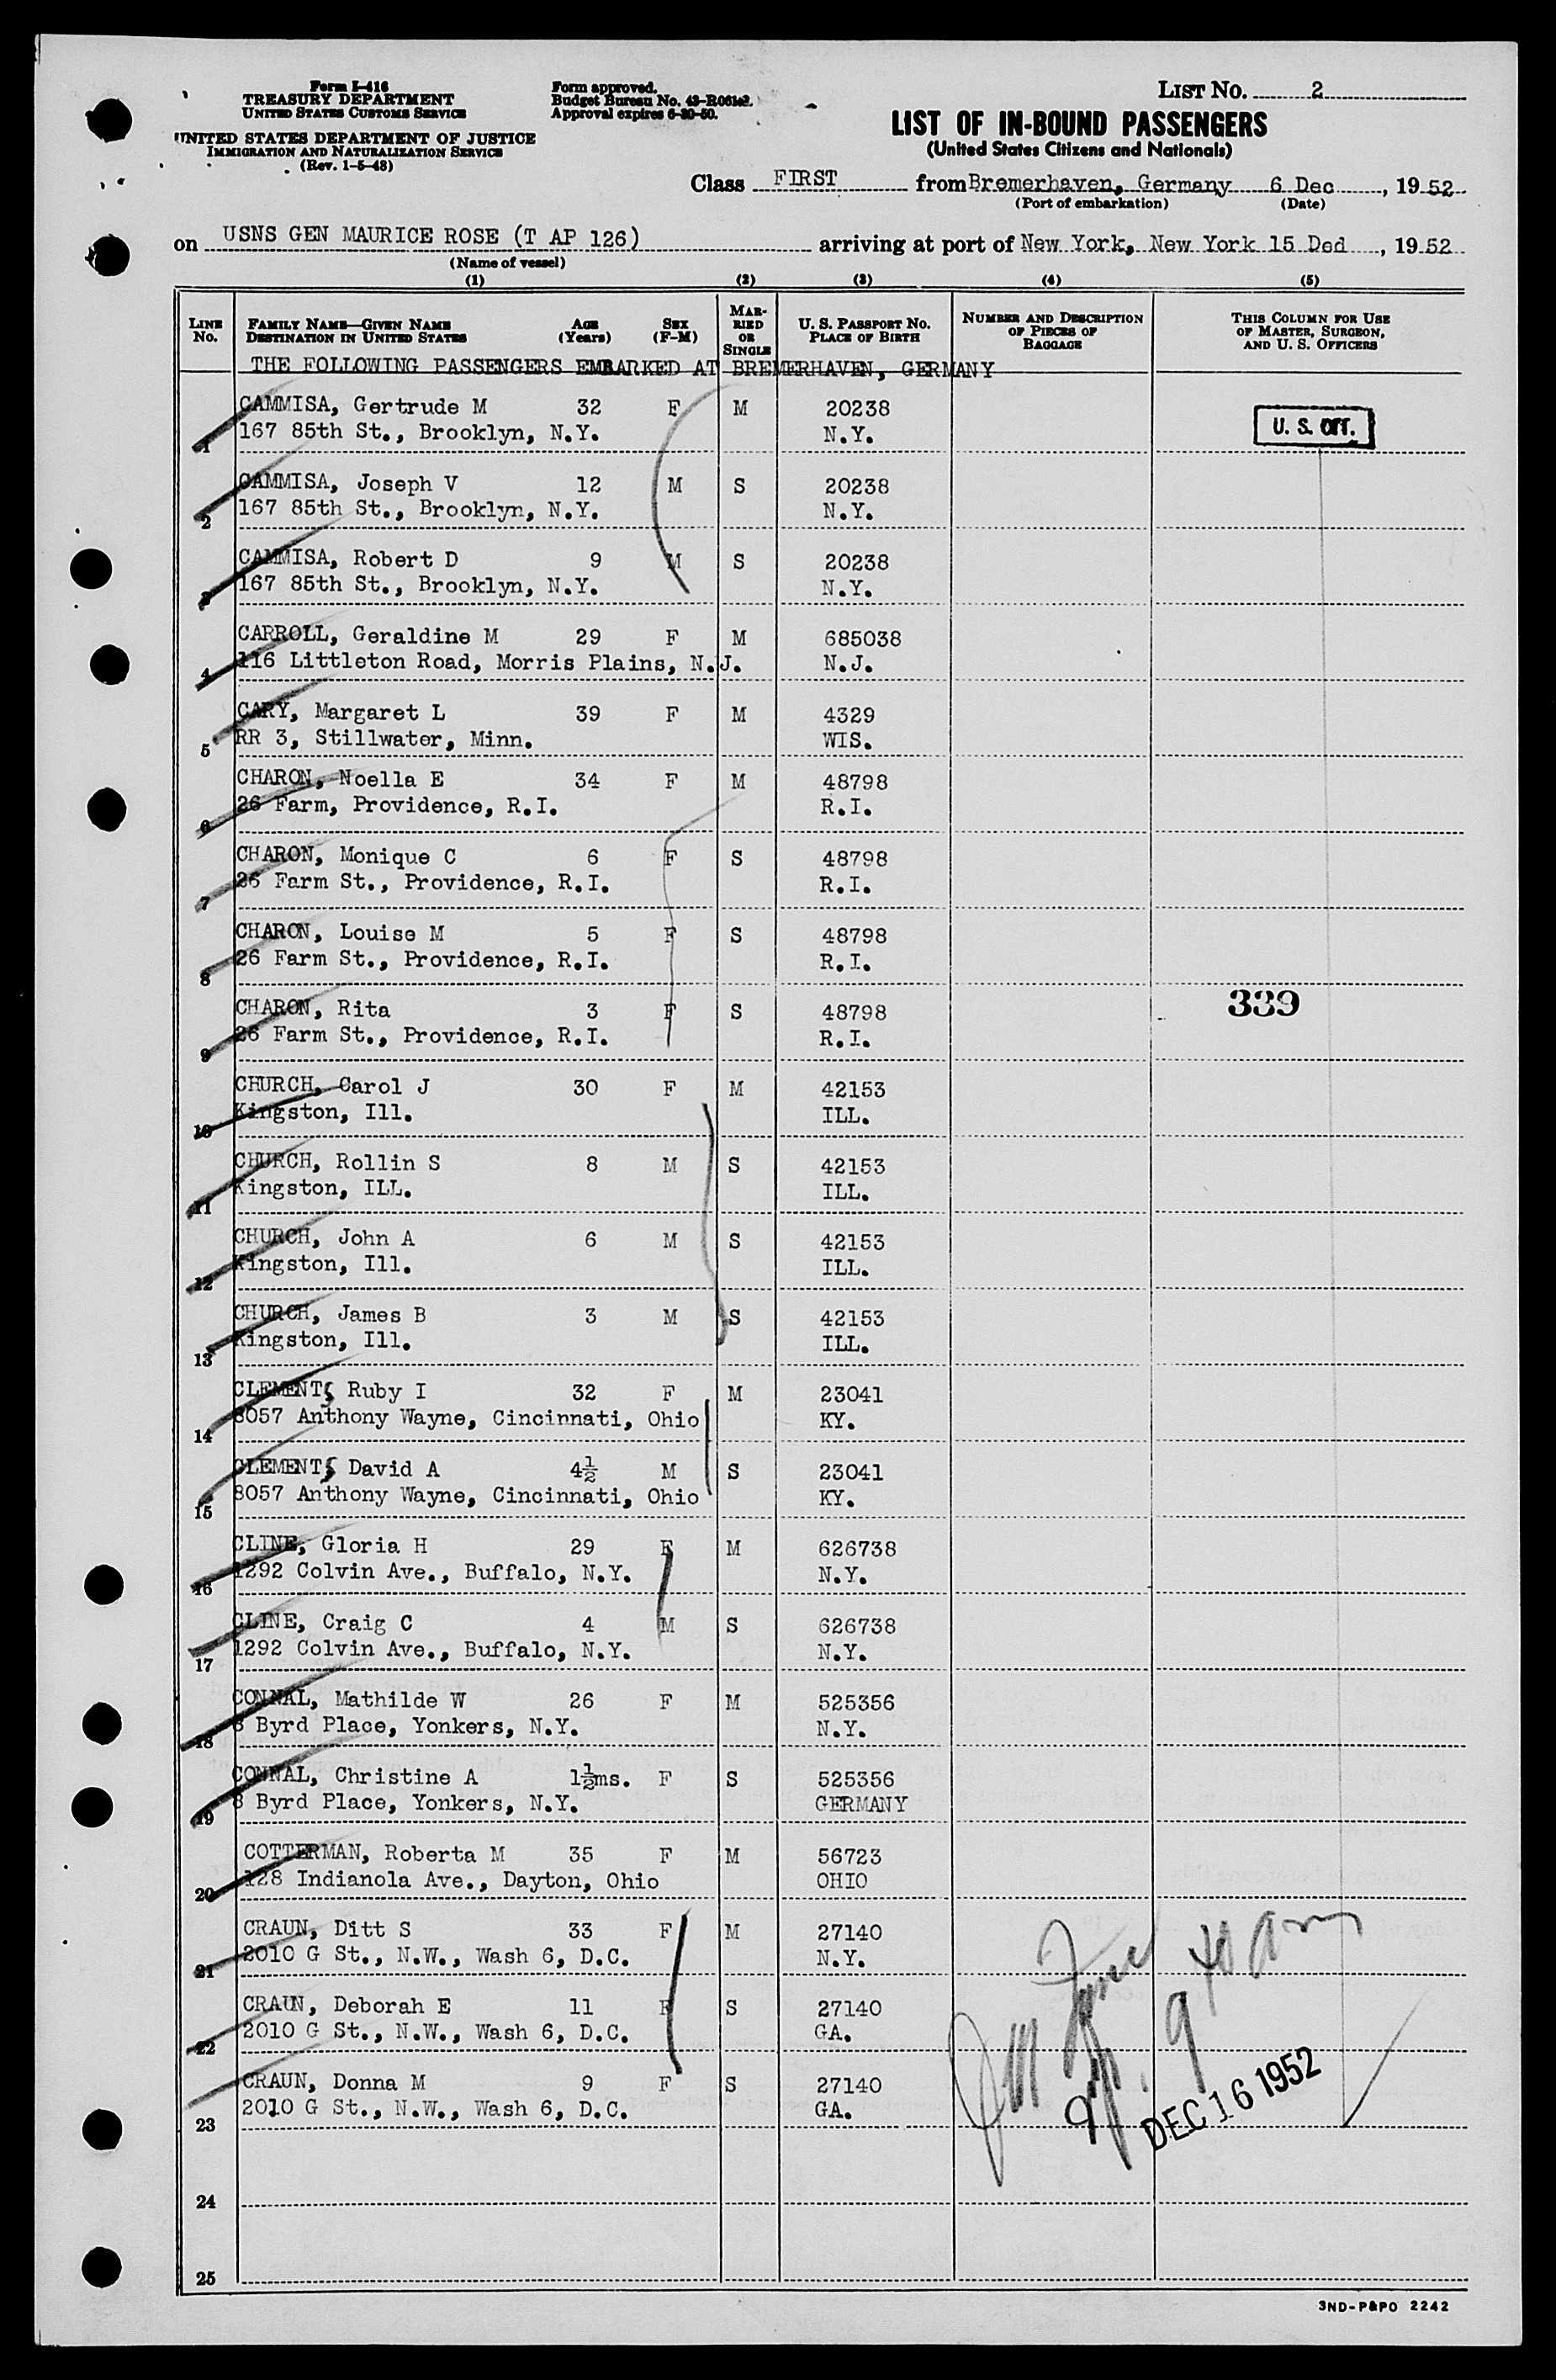 Form I-416
TREASURY DEPARTMENT
UNITED STATES CUSTOMS SERVICE
UNITED STATES DEPARTMENT OF JUSTICE
IMMIGRATION AND NATURALIZATION SERVICE
(Rev. 1-5-48)
Form approved.
Budget Bureau No. 43-R061.2.
Approval expires 6-30-50.
LIST NO. 2
LIST OF IN-BOUND PASSENGERS
(United States Citizens and Nationals)
Class FIRST from Bremerhaven, Germany 6 Dec, 1952
(Port of embarkation) (Date)
on USNS GEN MAURICE ROSE (T AP 126) arriving at port of New York, New York 15 Ded, 1952
(Name of vessel)
(1) (2) (3) (4) (5)
LINE No. FAMILY NAME—GIVEN NAME DESTINATION IN UNITED STATES AGE (Years) SEX (F-M) MARRIED OR SINGLE U. S. PASSPORT NO. PLACE OF BIRTH NUMBER AND DESCRIPTION OF PIECES OF BAGGAGE THIS COLUMN FOR USE OF MASTER, SURGEON, AND U. S. OFFICERS
THE FOLLOWING PASSENGERS EMBARKED AT BREMERHAVEN, GERMANY
CAMMISA, Gertrude M 32 F M 20238
1 167 85th St., Brooklyn, N.Y. N.Y. U. S. CIT.
CAMMISA, Joseph V 12 M S 20238
2 167 85th St., Brooklyn, N.Y. N.Y.
CAMMISA, Robert D 9 M S 20238
3 167 85th St., Brooklyn, N.Y. N.Y.
CARROLL, Geraldine M 29 F M 685038
4 116 Littleton Road, Morris Plains, N.J. N.J.
CARY, Margaret L 39 F M 4329
5 RR 3, Stillwater, Minn. WIS.
CHARON, Noella E 34 F M 48798
6 26 Farm, Providence, R.I. R.I.
CHARON, Monique C 6 F S 48798
7 26 Farm St., Providence, R.I. R.I.
CHARON, Louise M 5 F S 48798
8 26 Farm St., Providence, R.I. R.I.
CHARON, Rita 3 F S 48798 339
9 26 Farm St., Providence, R.I. R.I.
CHURCH, Carol J 30 F M 42153
10 Kingston, Ill. ILL.
CHURCH, Rollin S 8 M S 42153
11 Kingston, ILL. ILL.
CHURCH, John A 6 M S 42153
12 Kingston, Ill. ILL.
CHURCH, James B 3 M S 42153
13 Kingston, Ill. ILL.
CLEMENTS Ruby I 32 F M 23041
14 8057 Anthony Wayne, Cincinnati, Ohio KY.
CLEMENTS David A 4½ M S 23041
15 8057 Anthony Wayne, Cincinnati, Ohio KY.
CLINE, Gloria H 29 F M 626738
16 1292 Colvin Ave., Buffalo, N.Y. N.Y.
CLINE, Craig C 4 M S 626738
17 1292 Colvin Ave., Buffalo, N.Y. N.Y.
CONNAL, Mathilde W 26 F M 525356
18 8 Byrd Place, Yonkers, N.Y. N.Y.
CONNAL, Christine A 1½ms. F S 525356
19 8 Byrd Place, Yonkers, N.Y. GERMANY
COTTERMAN, Roberta M 35 F M 56723
20 128 Indianola Ave., Dayton, Ohio OHIO
CRAUN, Ditt S 33 F M 27140
21 2010 G St., N.W., Wash 6, D.C. N.Y.
CRAUN, Deborah E 11 F S 27140
22 2010 G St., N.W., Wash 6, D.C. GA.
CRAUN, Donna M 9 F S 27140
23 2010 G St., N.W., Wash 6, D.C. GA.
9 40 am
DEC 16 1952
24
25
3ND-P&PO 2242